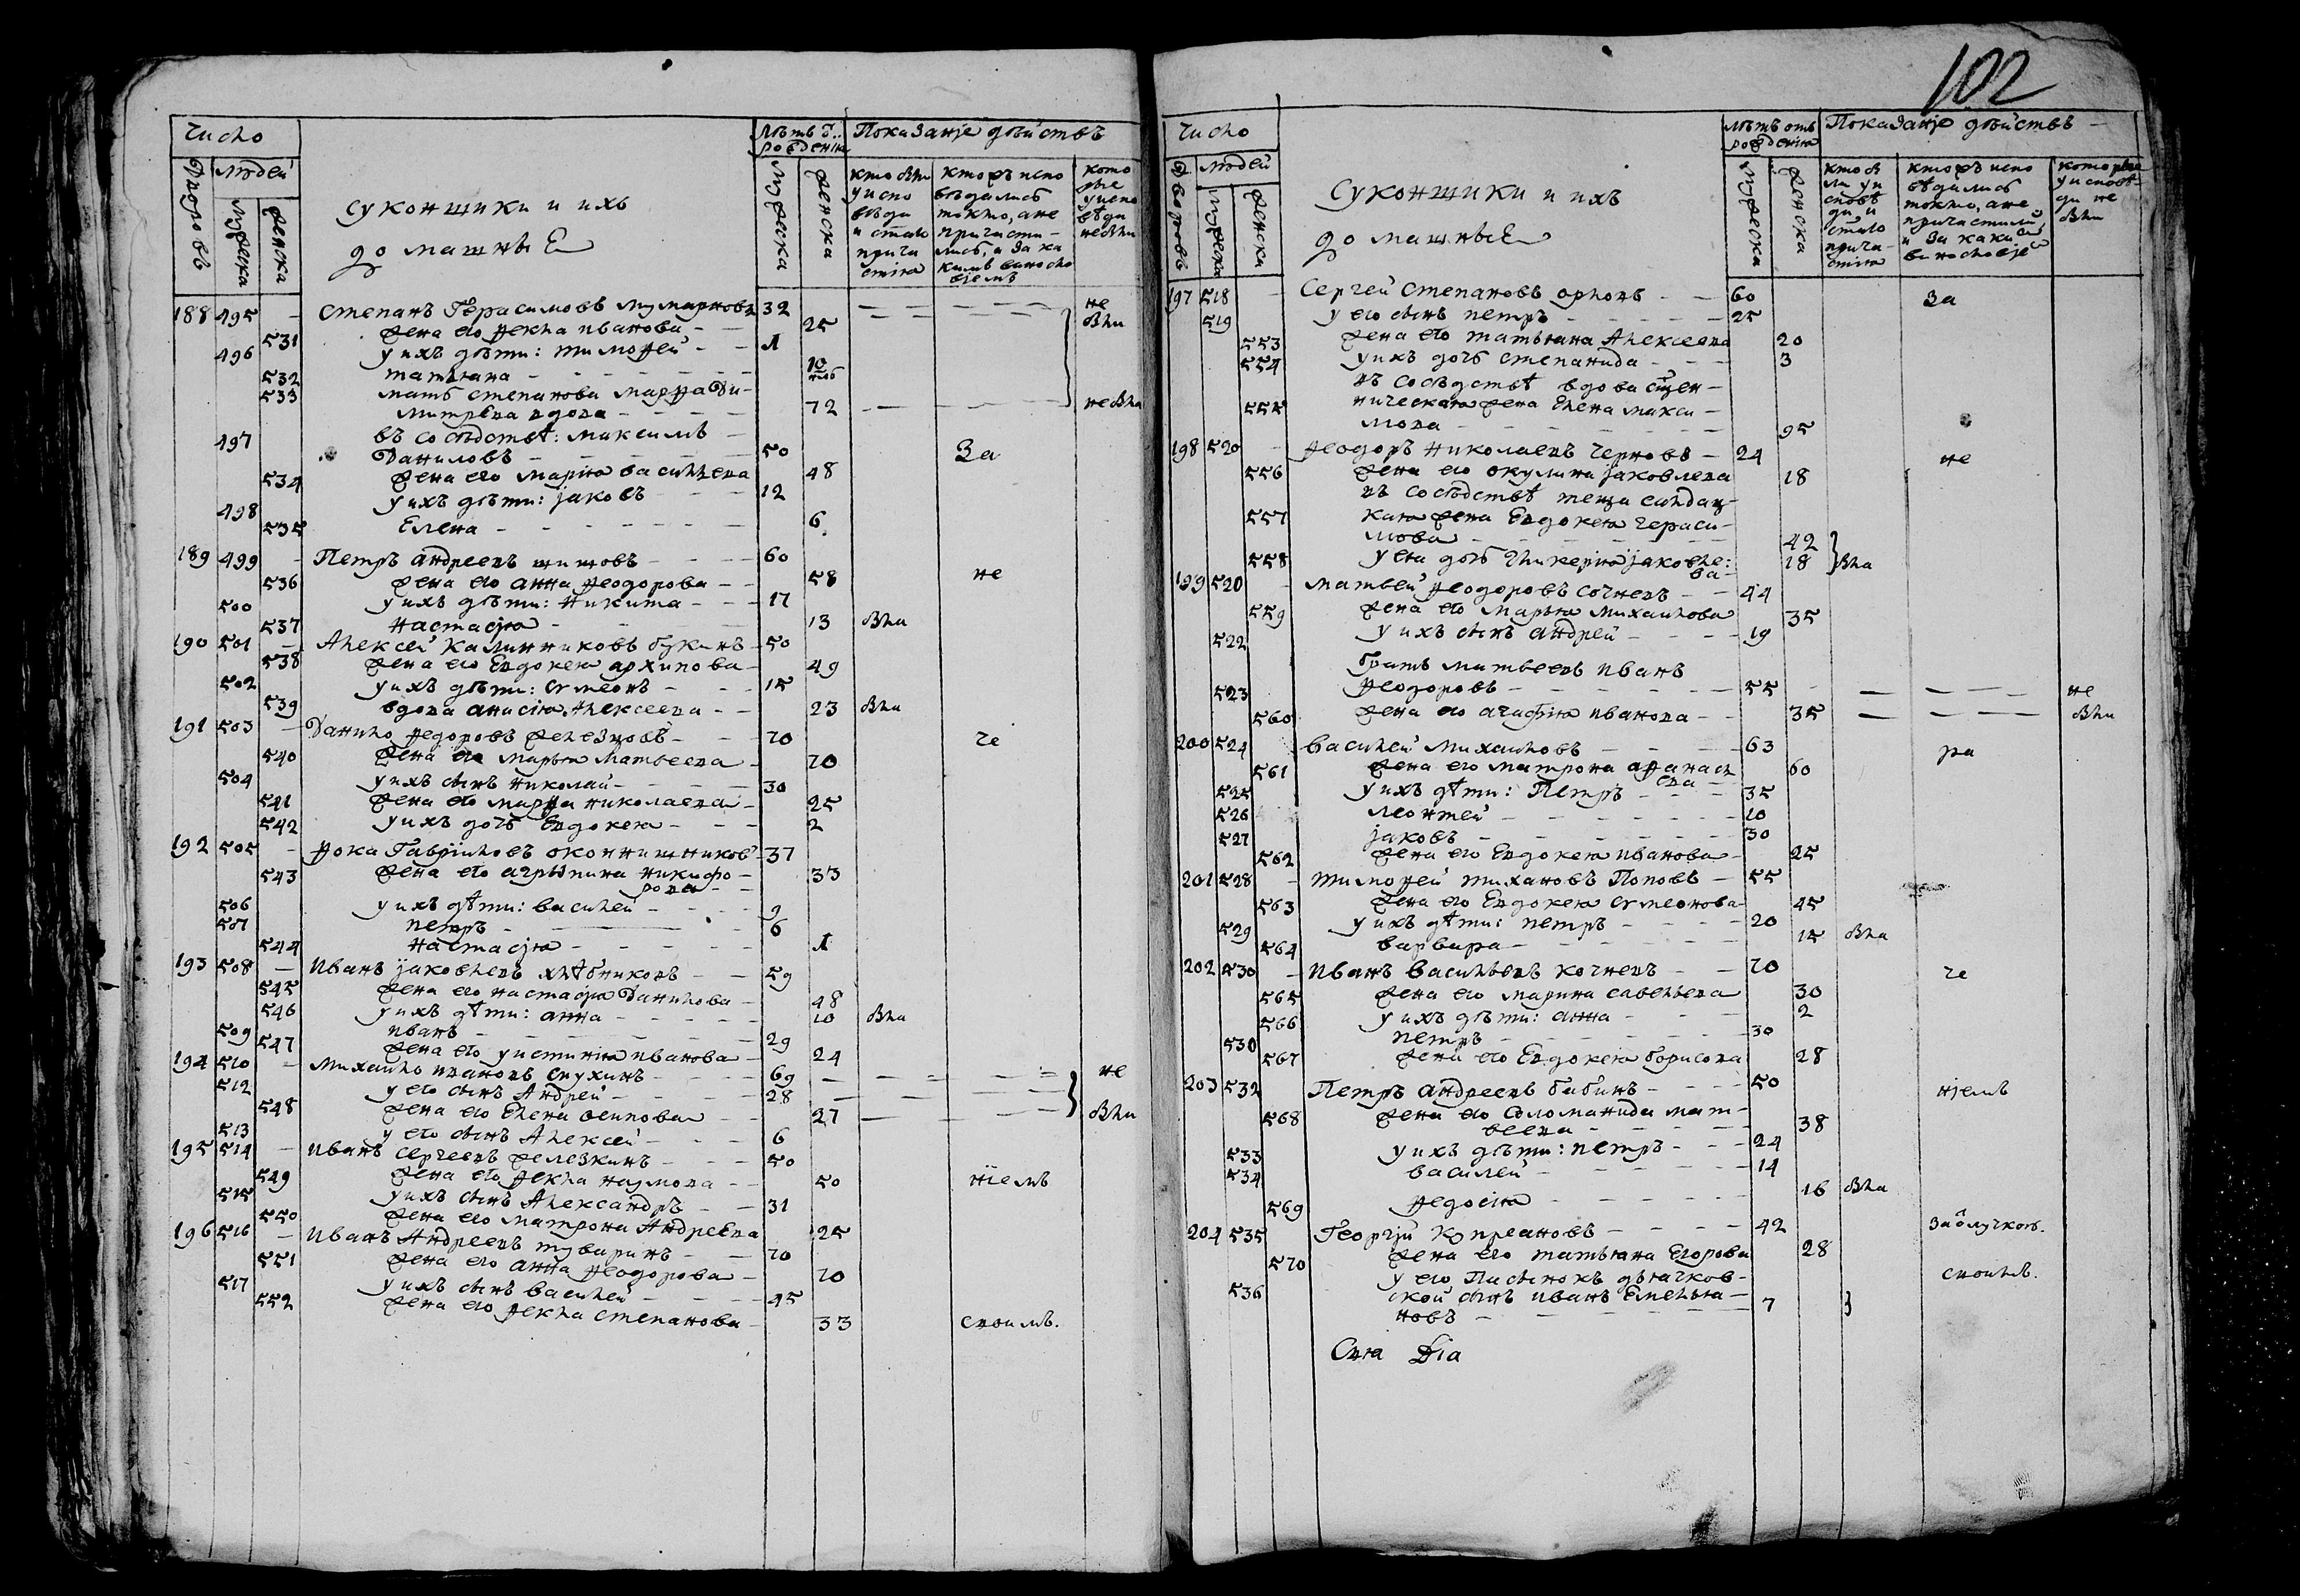 102
число
Лѣтъ
рожденiя
Показанiе дѣйствъ
Дворовъ
людей
мужеска
женска
суконщики и ихъ
домашныЕ
мужеска
женска
кто были
у испо
вѣди
и стаго
прича
стiя
кторъ испо
вѣдались
токмо, а не
причасти-
лись, и за ка
кимъ виносло
вiемъ
кото
рые
у испо
вѣди
не были
188 495 - степанъ Герасимовъ 32 не
531 жена его Ѳекла иванова - - 25 были
496 у ихъ дѣти: тимоѳей - - 1
532 татьяна - 10
533 мать степанова марѳа Ди-
митрева вдова - 72 не были
497 въ сосѣдствѣ: максимъ -
Даниловъ - 50 За
534 жена его марiя васильева 48
498 у ихъ дѣти: jаковъ - 12
535 Елена - 6
189 499 - Петръ андреевъ шишовъ - 60
536 жена его анна Ѳеодорова - - 58 не
500 у ихъ дѣти: никита - - - 17
537 настасiя - 13 были
190 501 - Алексей калинниковъ букинъ - 50
538 жена его Евдокея архипова - 49
502 у ихъ дѣти: симеонъ - - - 15
539 вдова анисiя Алексеева - - 23 были
191 503 - Данило Ѳедоровъ - 70 че
540 жена его марья Матвеева - 70
504 у ихъ сынъ николай - 30
541 жена его марѳа николаева - 25
542 у ихъ дочь Евдокея - - - 2
192 505 - Ѳока Гаврiловъ оконнишников - 37
543 жена его агрыпина никифо- 33
рова - -
506 у ихъ дѣти: василей - 9
507 петръ - 6
544 настасiя - 1
193 508 - иванъ jаковлевъ хлѣбниковъ - - 59
545 жена его настасiя Данилова - 48
546 у ихъ дѣти: анна - 10 были
509 иванъ - 29
547 жена его устинiя иванова - 24
194 510 - михайло ивановъ слухинъ - 69 не
512 у его сынъ Андрей - 28
548 жена его Елена осипова - - 27 были
513 у его сынъ Алексей - 6
195 514 - иванъ сергеевъ железкинъ - - 50
549 жена его Ѳекла наумова - - 50 нiемъ
515 у ихъ сынъ Александръ - - 31
550 жена его матрона Андреева 25
196 516 - иванъ Андреевъ туваринъ - - 70
551 жена его анна Ѳеодорова - 70
517 у ихъ сынъ василей - 45
552 жена его Ѳекла степанова - 33 своимъ.
число
лѣтъ отъ
рожденiя
Показанiе дѣйствъ -
Дворовъ
людей
мужеска
женска
суконщики и ихъ
домашныЕ
мужеска
женска
кто бы
ли у и
сповѣ
ди, и
стаго
прича-
стiя
кторъ испо
вѣдались
токмо, а не
причастили
и за каки
винословiе
которые
у исповѣ-
ди не
были
197 518 - Сергей степановъ орловъ - - 60 За
519 у его сынъ петръ - 25
553 жена его татьяна Алексеева 20
554 у ихъ дочь степанида - - - 3
въ сосѣдствѣ вдова сщен-
555 ническая жена Елена макси-
мова - 95
198 520 - Ѳеодоръ николаевъ черновъ - 24 не
556 жена его окулина jаковлева 18
въ сосѣдствѣ теща салдац-
557 кая жена Евдокея гераси-
мова - 42
558 у ея дочь гликерiя jаковле: 18 были
ва -
199 520 - матвей Ѳеодоровъ сочневъ - - 44
559 жена его марья михайлова 35
522 у ихъ сынъ андрей - 19
братъ матвеевъ иванъ
523 Ѳеодоровъ - 55 не
560 жена его агафiя иванова - - 35 были
200 524 василей михайловъ - 63 ра
561 жена его матрона аѳанась 60
ева -
525 у ихъ дѣти: Петръ - 35
526 леонтей - 10
527 jаковъ - 30
562 жена его Евдокея иванова - 25
201 528 - тимоѳей тихановъ Поповъ - 55
563 жена его Евдокея симеонова - 45
529 у ихъ дѣти: петръ - 20
564 варвара - 15 были
202 530 - иванъ васильевъ кочневъ - - 70 че
565 жена его марина савельева 30
566 у ихъ дѣти: анна - 2
530 петръ - 30
567 жена его Евдокея борисова 28
203 532 Петръ андреевъ бабинъ - 50 нiемъ
568 жена его Соломанида мат- 38
веева -
533 у ихъ дѣти: петръ - - - 24
534 василей - 14
569 Ѳедосiя - 16 были
204 535 Георгiй Купреановъ - 42 заотлучкою.
570 жена его татьяна Егорова 28
у его Пасынокъ дьячков- своимъ.
536 ской сынъ иванъ Емелья-
новъ - 7